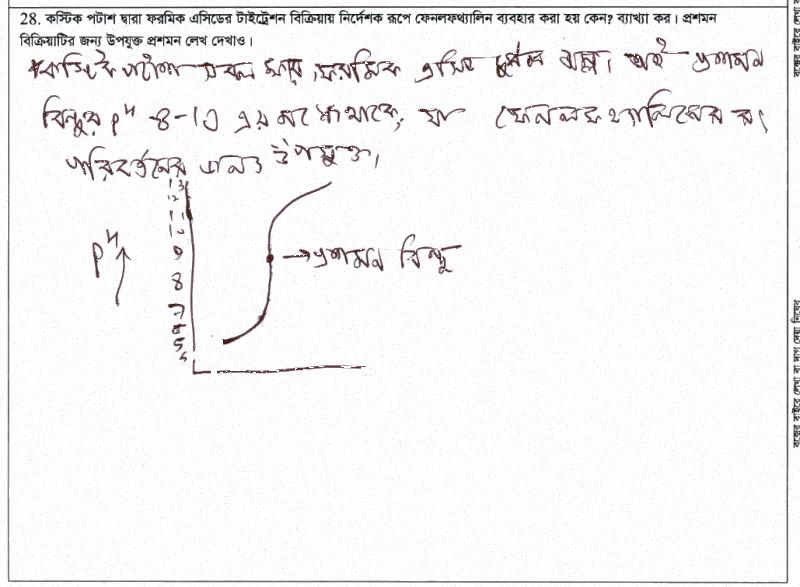 28. কস্টিক পটাশ দ্বারা ফরমিক এসিডের টাইট্রেশন বিক্রিয়ায় নির্দেশক রূপে ফেনলফথ্যালিন ব্যবহার করা হয় কেন? ব্যাখ্যা কর। প্রশমন
বিক্রিয়াটির জন্য উপযুক্ত প্রশমন লেখ দেখাও।
কস্টিক পটাশ সবল ক্ষার, ফরমিক এসিড দুর্বল অম্ল। তাই প্রশমন
বিন্দুর pH 8-10 এর মধ্যে থাকে, যা ফেনলফথ্যালিনের রং
পরিবর্তনের জন্য উপযুক্ত।
13
12
11
10
9
8
7
6
5
pH
→ প্রশমন বিন্দু